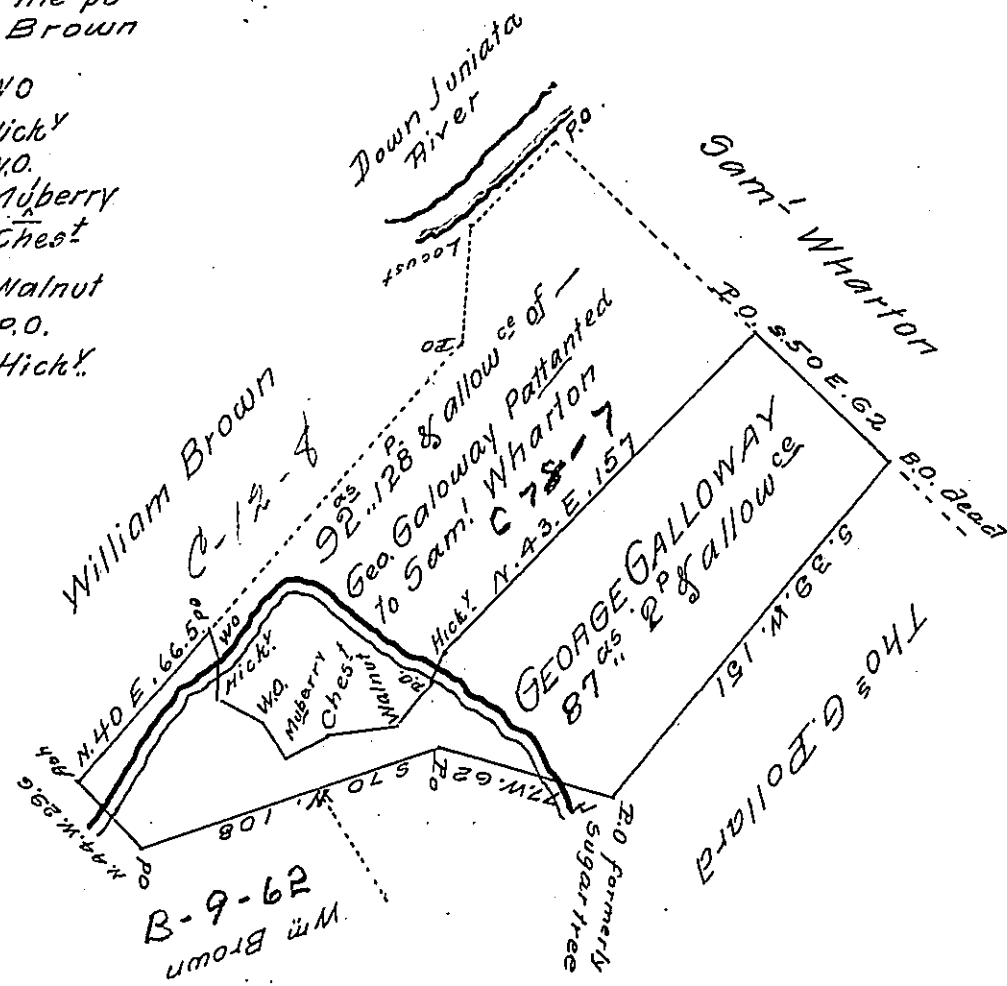 Brown
Hicky
W.O.
Muberry
Chest
Walnut
P.O.
Hicky.
Down Juniata
River
P.O
Locust
Sam! Wharton
P.O. S.50 E.62
B.O. dead
PO
William Brown
C-12-8
92 as .. 128 P. & allowce of —
Geo. Galoway Pattanted
to Sam! Wharton
C 78-7
Hicky N.43.E.157
GEORGE GALLOWAY
87 as " 2 P & allowce
S.39.W.151
Thos G. Pollard
N.40 E.66.5
PO
WO
Hicky.
W.O.
Muberry
Chest
Walnut
P.O.
Ash
N.49.W.29.6
PO
S 70 W. 108
Po
N 77.W.62
P.O formerly
Sugartree
B-9-62
Wm Brown